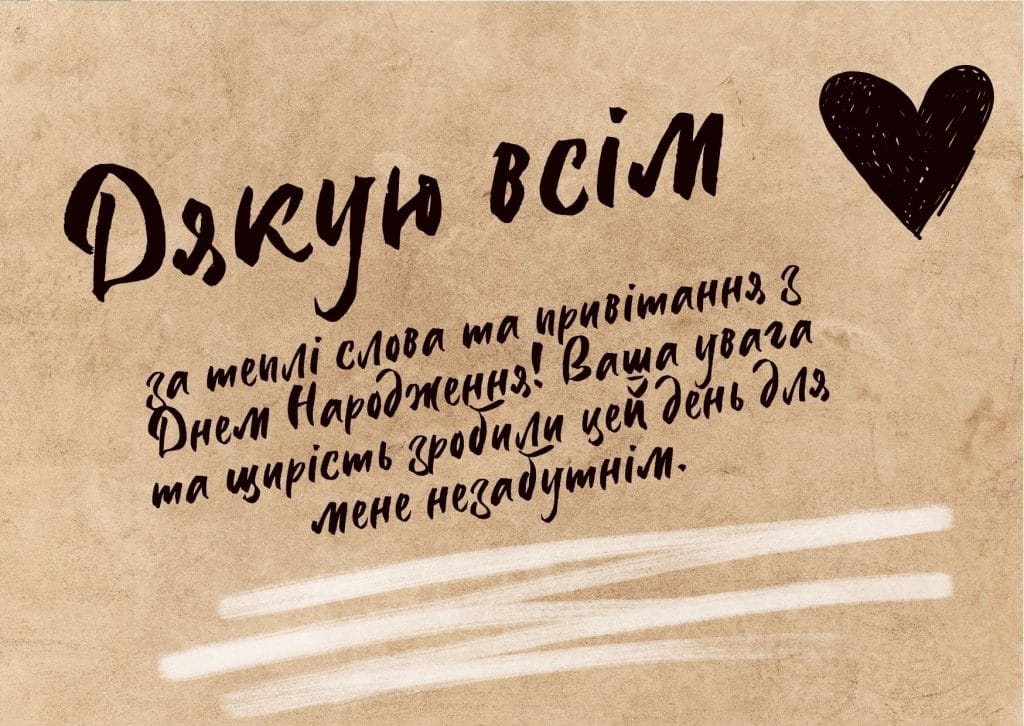 Дякую всім
за теплі слова та привітання з
Днем Народження! Ваша увага
та щирість зробили цей день для
мене незабутнім.